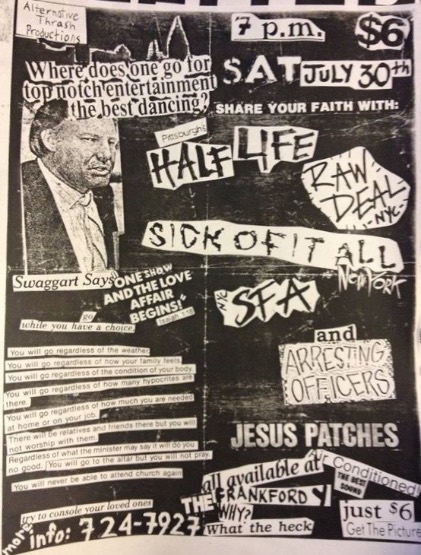 Alternative
Thrash
Productions
Where does one go for
top notch entertainment
the best dancing?
Swaggart Says
"ONE SHOW
AND THE LOVE
AFFAIR
BEGINS!"
Isaiah 1:18
go
while you have a choice.
You will go regardless of the weather.
You will go regardless of how your family feels.
You will go regardless of the condition of your body.
You will go regardless of how many hypocrites are
there.
You will go regardless of how much you are needed
at home or on your job.
There will be relatives and friends there but you will
not worship with them.
Regardless of what the minister may say it will do you
no good. You will go to the altar but you will not pray.
You will never be able to attend church again
try to console your loved ones
more info: 724-7927
7 p.m. $6
SAT JULY 30th
SHARE YOUR FAITH WITH:
Pittsburghs
HALF LIFE
RAW
DEAL
NYC
SICK OF IT ALL
NEW YORK
SFA
and
ARRESTING
OFFICERS
JESUS PATCHES
all available at
THE FRANKFORD Y!
WHY?
What the heck
Air Conditioned
THE BEST
SOUND
just $6
Get The Picture